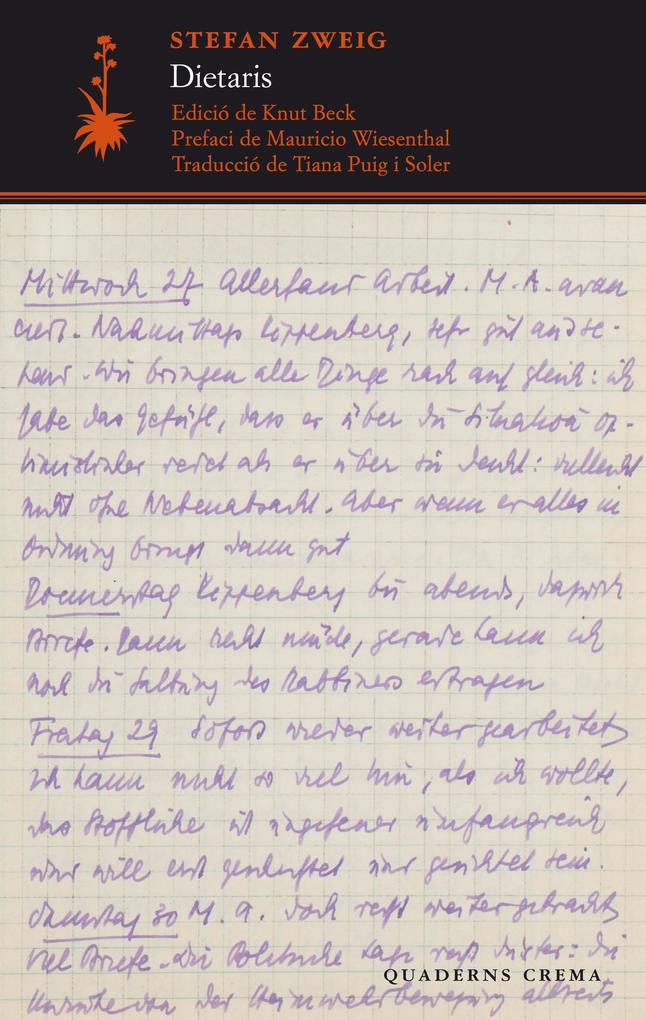 STEFAN ZWEIG
Dietaris
Edició de Knut Beck
Prefaci de Mauricio Wiesenthal
Traducció de Tiana Puig i Soler
Mittwoch 27 Allerhand Arbeit. M. A. avan
ciert. Nachmittags Kippenberg, sehr gut
Wir bringen alle Dinge rasch auf gleich: ich
habe das Gefühl, dass er über die Situation op-
timistischer redet als er über sie denkt: vielleicht
nicht ohne Nebenabsicht. Aber wenn er alles in
Ordnung bringt dann gut
Donnerstag Kippenberg bis abends,
Briefe. Dann recht müde, gerade kann ich
noch die des Rabbiners ertragen
Freitag 29 Sofort wieder weitergearbeitet
ich kann nicht so viel tun, als ich wollte,
das Stoffliche ist ungeheuer umfangreich
und will erst und gesichtet sein.
Samstag 30 M. A. doch recht weitergebracht
viel Briefe. die Politische Lage recht düster: die
von der Heimwehrbewegung
QUADERNS CREMA